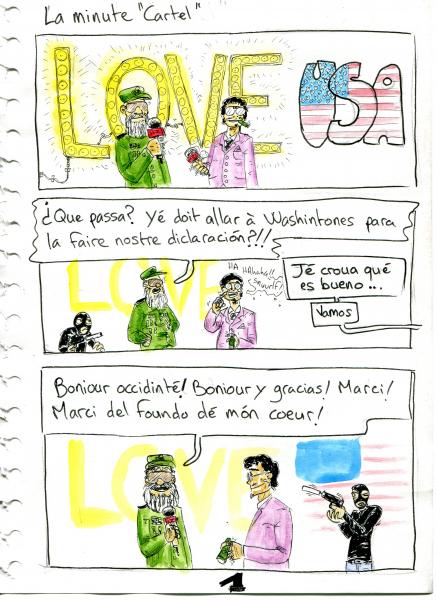 La minute "Cartel"
LOVE
USA
¿Que passa? Yé doit allar à Washintones para
la faire nostre diclaración?!!!
HA HAhaha!!
Jé croua qué
es bueno...
Vamos
LOVE
Boniour occidinté! Boniour y gracias! Marci!
Marci del foundo dé món coeur!
LOVE
1